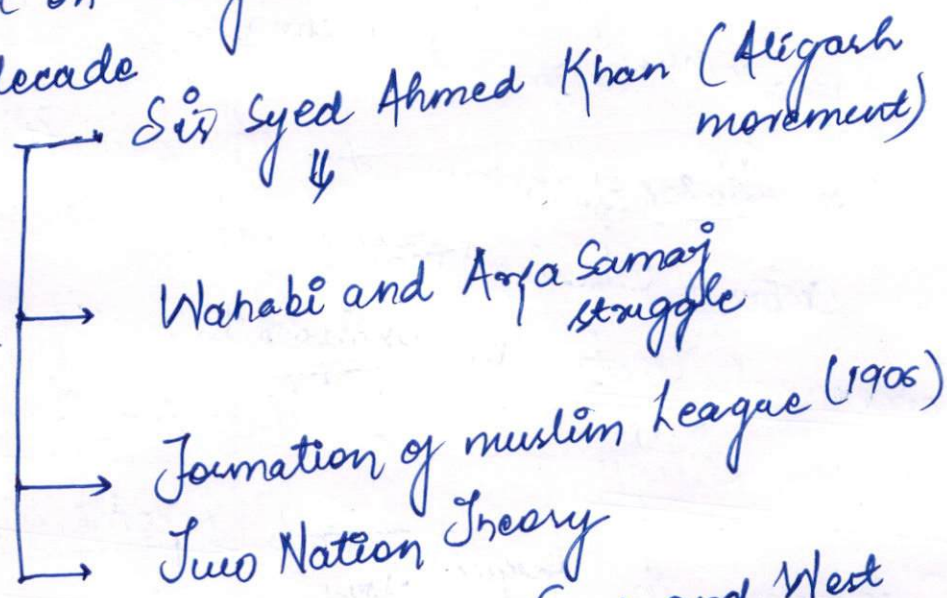 on
decade
Sir Syed Ahmed Khan (Aligarh
movement)
Wahabi and Arya Samaj
struggle
Formation of muslim League (1906)
Two Nation Theory
and West